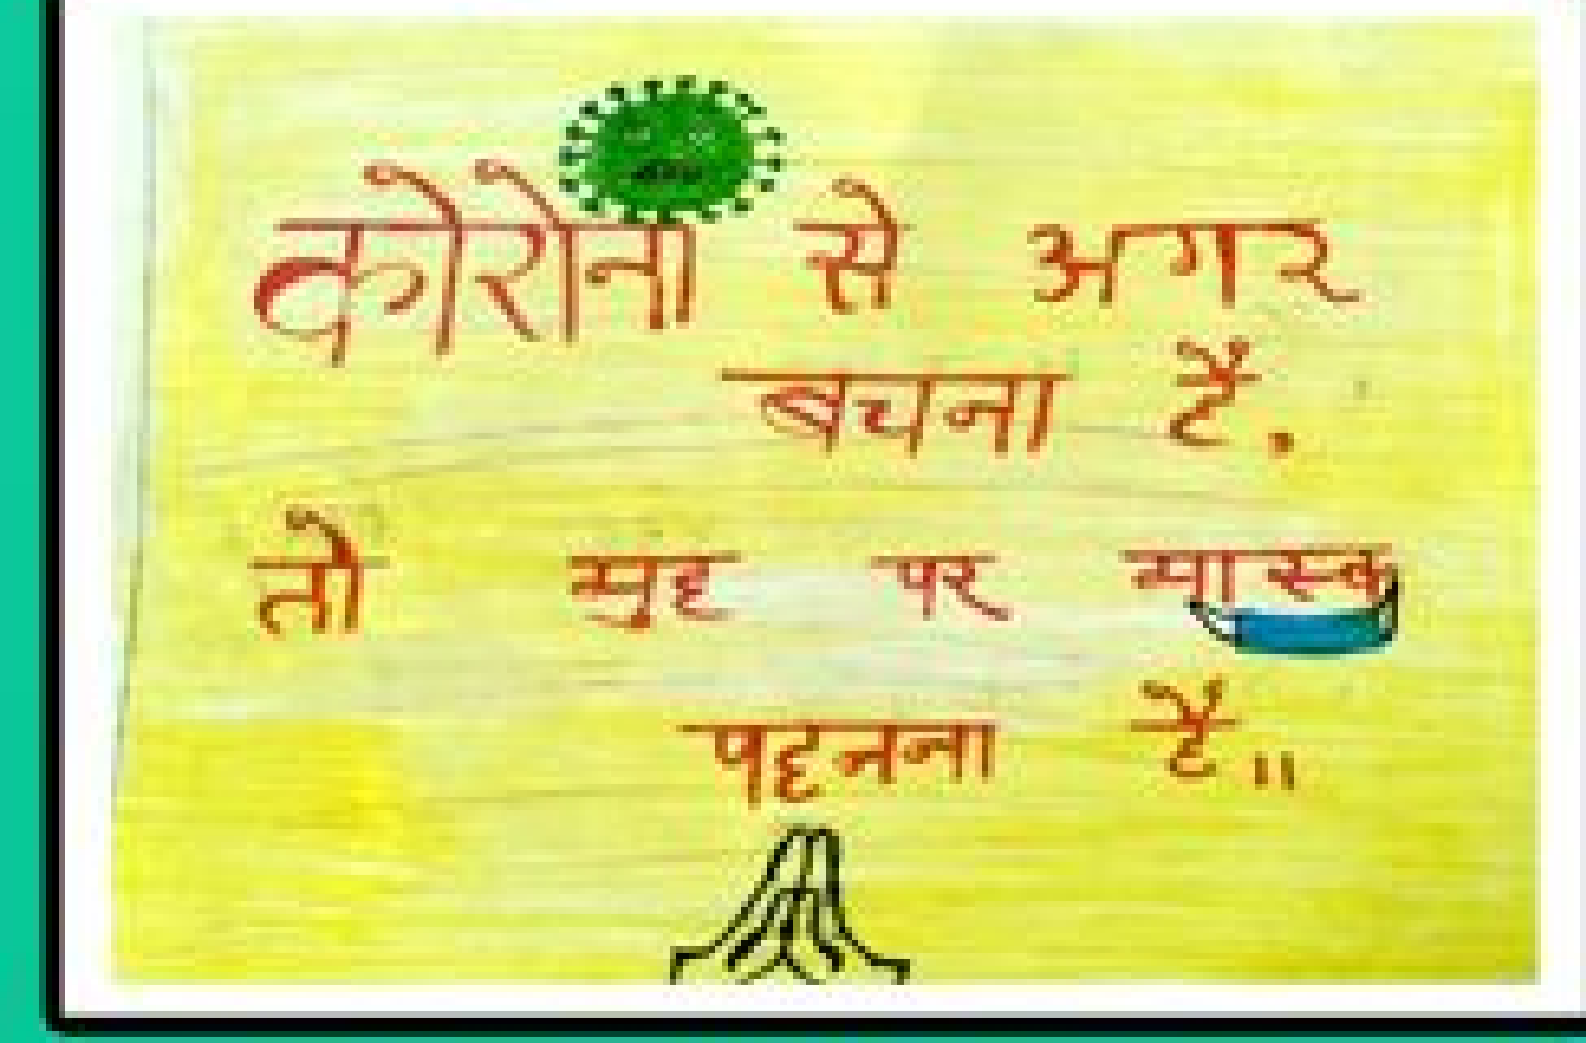 कोरोना से अगर
बचना हैं.
तो मुह पर मास्क
पहनना हैं॥